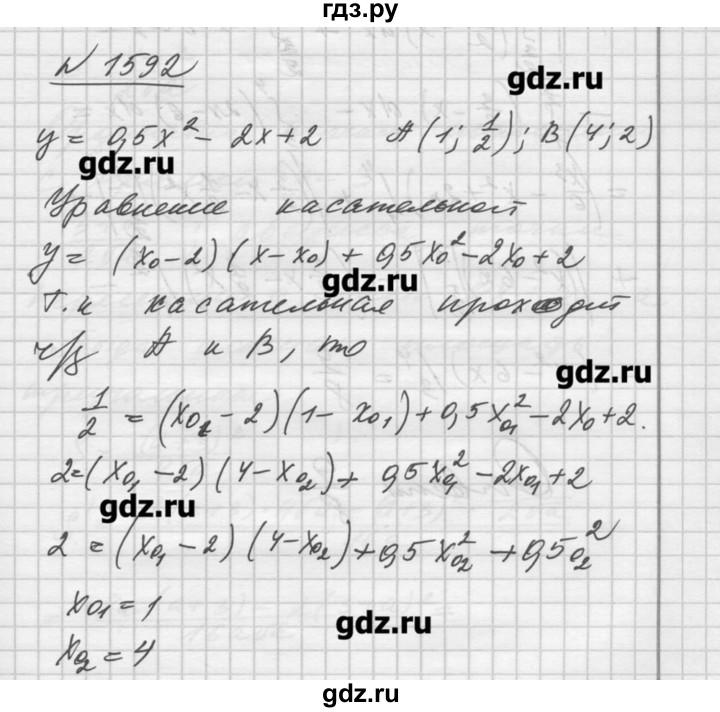 гдз.ру
N 1592
gdz.ru
y = 0,5x² - 2x + 2 A(1; 1/2); B(4; 2)
gdz.ru
Уравнение касательной
y = (x₀ - 2)(x - x₀) + 0,5x₀² - 2x₀ + 2
gdz.ru
Т.к касательная проходит
ч/з A и B, то
gdz.ru
1/2 = (x₀₁ - 2)(1 - x₀₁) + 0,5x₀₁² - 2x₀ + 2.
2 = (x₀₁ - 2)(4 - x₀₂) + 0,5x₀₁² - 2x₀₁ + 2
gdz.ru
2 = (x₀₁ - 2)(4 - x₀₂) + 0,5x₀₂² + 0,5₀₂²
x₀₁ = 1
gdz.ru
x₀₂ = 4
gdz.ru